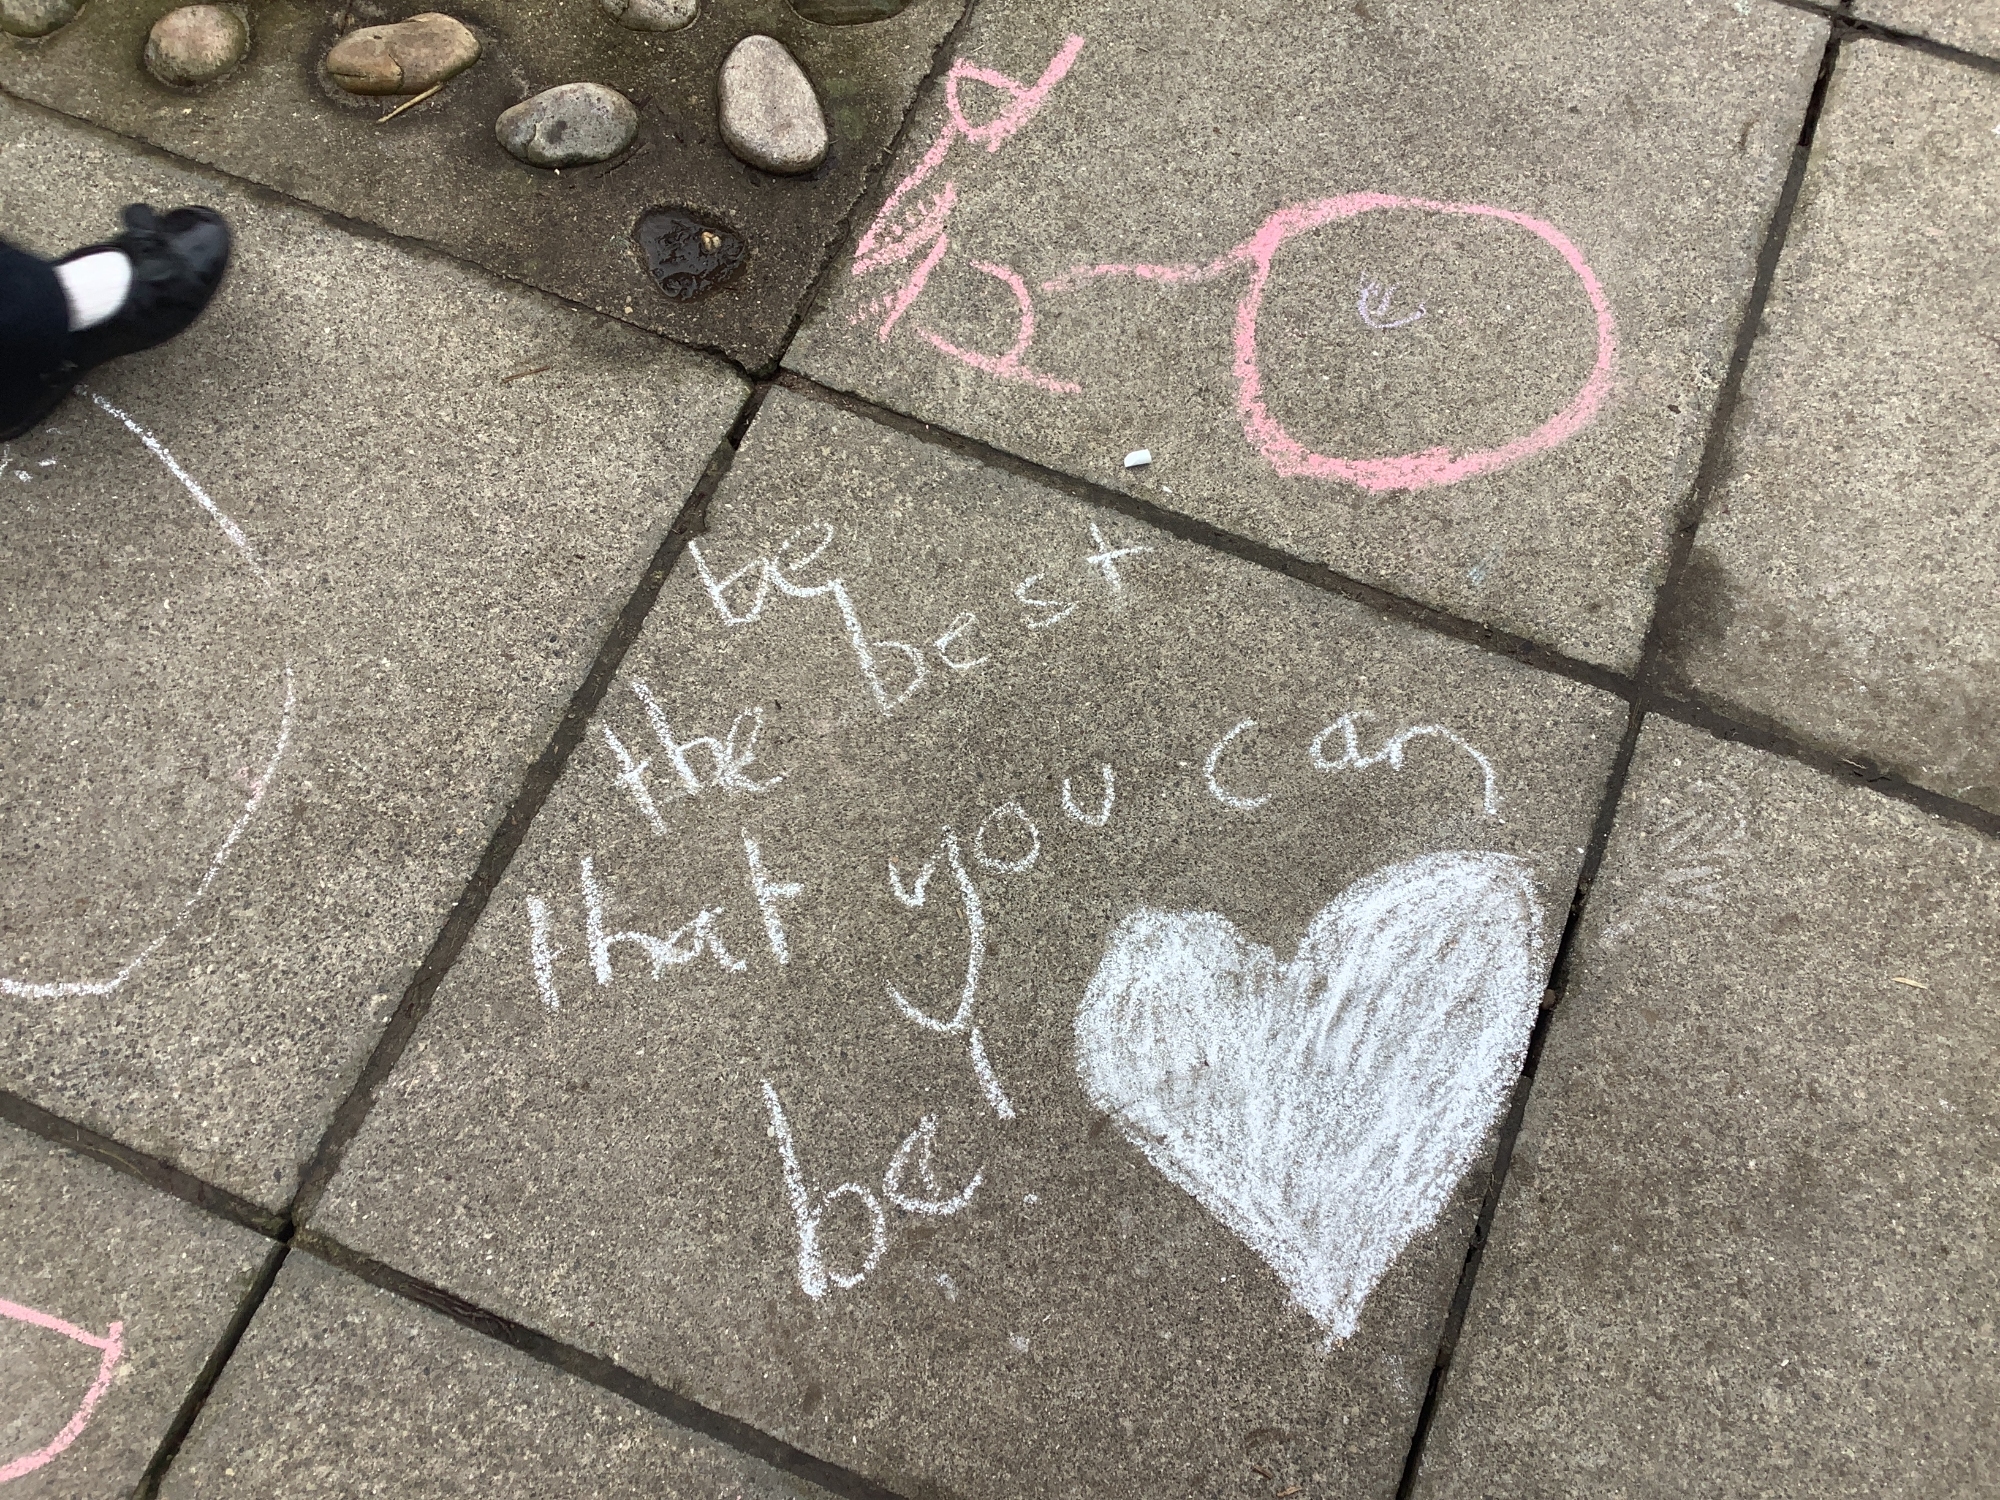 be best
the
that you can
be!